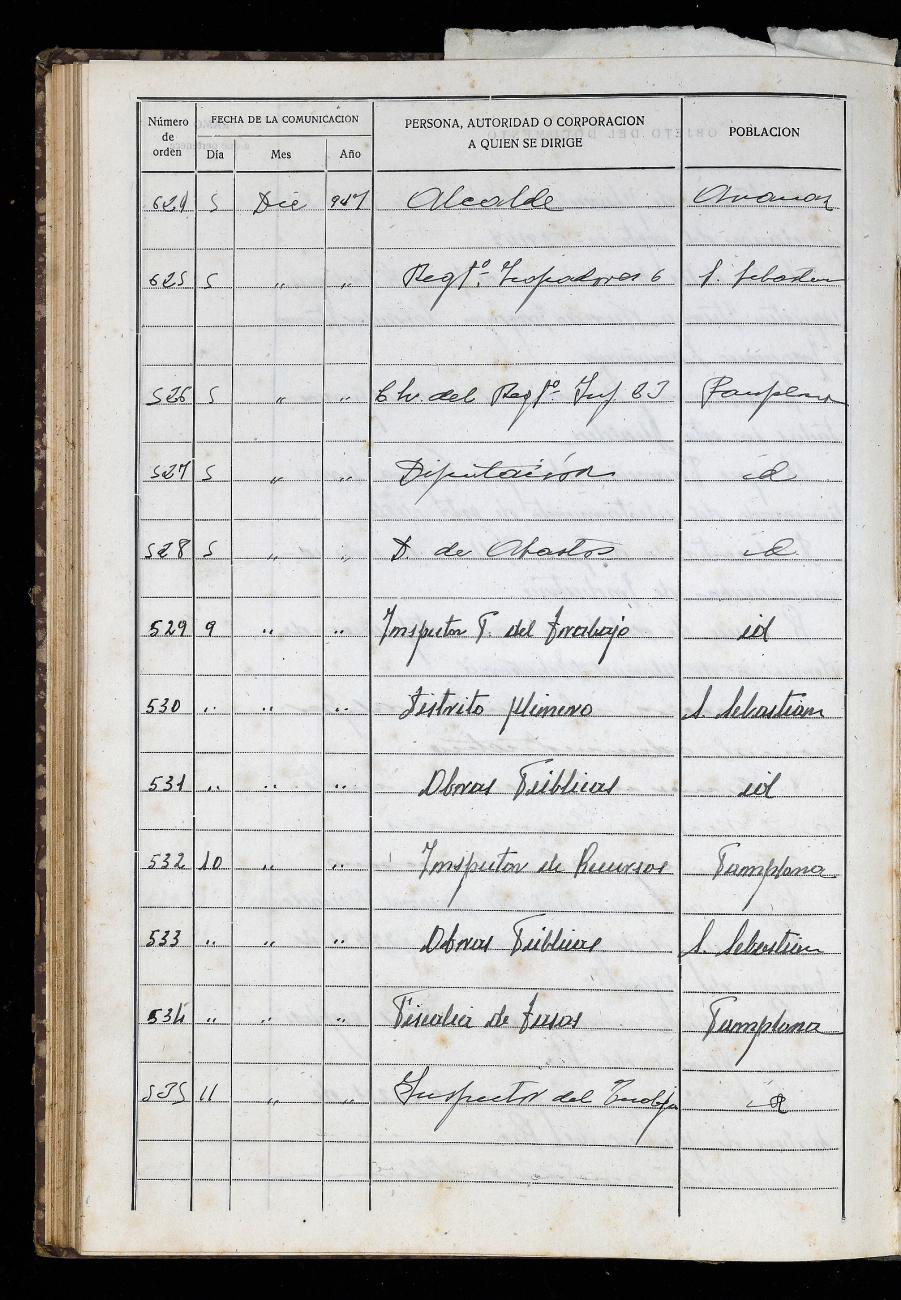 Número de orden FECHA DE LA COMUNICACION PERSONA, AUTORIDAD O CORPORACION A QUIEN SE DIRIGE POBLACION
Día Mes Año
624 5 Dic 947 Alcalde
625 5 " " Regtº. Zapadores 6 S. Sebastian
526 5 " " del Regtº. Inf 23 Pamplona
527 5 " " Diputación id
528 5 " " D. de Abastos id
529 9 " " Inspector P. del Trabajo id
530 " " " Distrito Minero S. Sebastian
531 " " " Obras Públicas id
532 10 " " Inspector de Recursos Pamplona
533 " " " Obras Públicas S. Sebastian
534 " " " Fiscalia de Tasas Pamplona
535 11 " " Inspector del Trabajo id